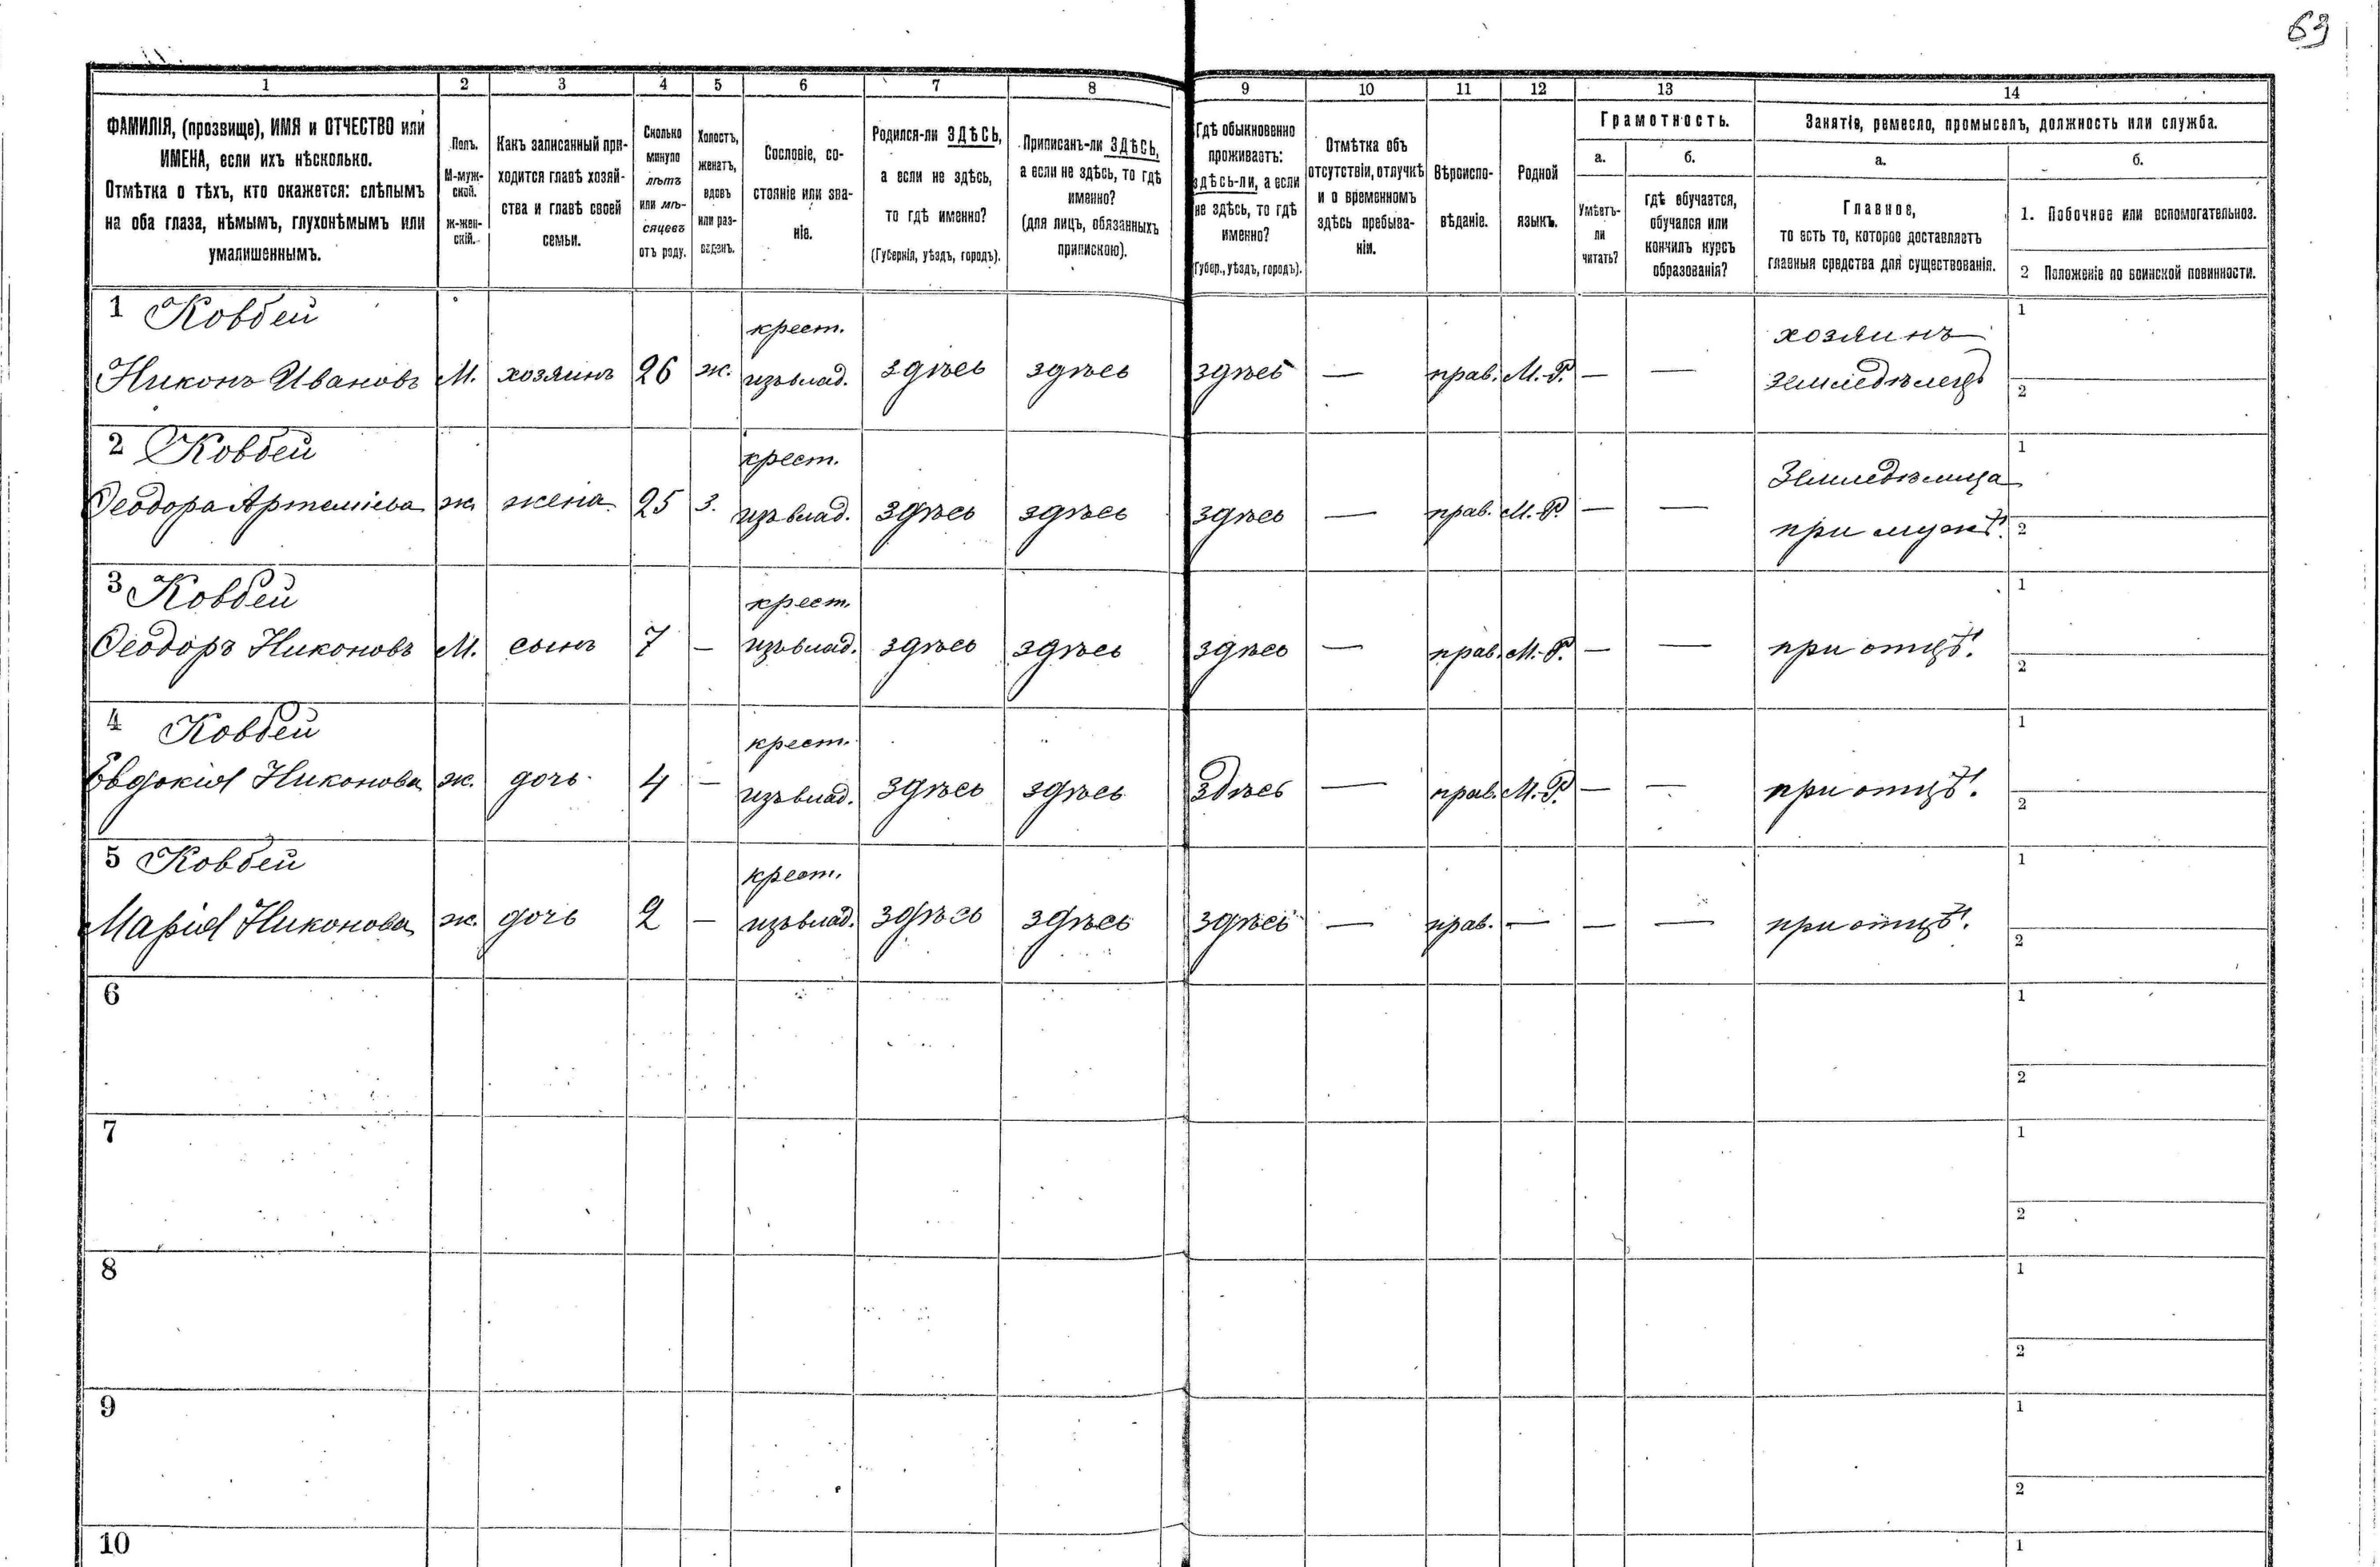 63
1 2 3 4 5 6 7 8 9 10 11 12 13 14
ФАМИЛІЯ, (прозвище), ИМЯ и ОТЧЕСТВО или
ИМЕНА, если ихъ нѣсколько.
Отмѣтка о тѣхъ, кто окажется: слѣпымъ
на оба глаза, нѣмымъ, глухонѣмымъ или
умалишеннымъ.
Полъ.
М-муж-
ской.
Ж-жен-
скій.
Какъ записанный при-
ходится главѣ хозяй-
ства и главѣ своей
семьи.
Сколько
минуло
лѣтъ
или мѣ-
сяцевъ
отъ роду.
Холостъ,
женатъ,
вдовъ
или раз-
веденъ.
Сословіе, со-
стояніе или зва-
ніе.
Родился-ли ЗДѢСЬ,
а если не здѣсь,
то гдѣ именно?
(Губернія, уѣздъ, городъ).
Приписанъ-ли ЗДѢСЬ,
а если не здѣсь, то гдѣ
именно?
(для лицъ, обязанныхъ
припискою).
Гдѣ обыкновенно
проживаетъ:
здѣсь-ли, а если
не здѣсь, то гдѣ
именно?
(Губер., уѣздъ, городъ).
Отмѣтка объ
отсутствіи, отлучкѣ
и о временномъ
здѣсь пребыва-
ніи.
Вѣроиспо-
вѣданіе.
Родной
языкъ.
Грамотность.
а.
Умѣетъ-
ли
читать?
б.
гдѣ обучается,
обучался или
кончилъ курсъ
образованія?
Занятіе, ремесло, промыселъ, должность или служба.
а.
Главное,
то есть то, которое доставляетъ
главныя средства для существованія.
б.
1. Побочное или вспомогательное.
2 Положеніе по воинской повинности.
1 Ковбей крест. хозяинъ 1
Никонъ Ивановъ М. хозяинъ 26 ж. изъ влад. здѣсь здѣсь здѣсь — прав. М.-Р. — — земледѣлецъ 2
2 Ковбей крест. Земледѣлица 1
Ѳеодора Артемiева ж. жена 25 з. изъ влад. здѣсь здѣсь здѣсь — прав. М.-Р. — — при мужѣ. 2
3 Ковбей крест. 1
Ѳеодоръ Никоновъ М. сынъ 7 — изъ влад. здѣсь здѣсь здѣсь — прав. М.-Р. — — при отцѣ. 2
4 Ковбей крест. 1
Евдокія Никонова ж. дочь 4 — изъ влад. здѣсь здѣсь здѣсь — прав. М.-Р. — — при отцѣ. 2
5 Ковбей крест. 1
Марія Никонова ж. дочь 2 — изъ влад. здѣсь здѣсь здѣсь — прав. — — — при отцѣ. 2
6 1
2
7 1
2
8 1
2
9 1
2
10 1